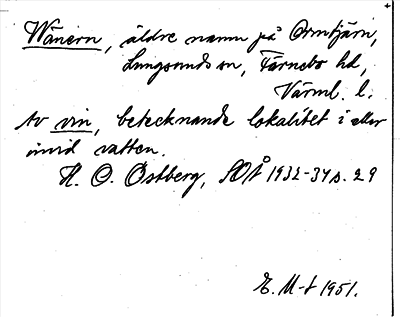 Wänern, äldre namn på Ormtjärn,
Lungsunds sn, Färnebo hd,
Värml. l.
Av vin, betecknande lokalitet i eller
invid vatten.
H. O. Östberg, SOÅ 1932-34 s. 29
E. M-t 1951.